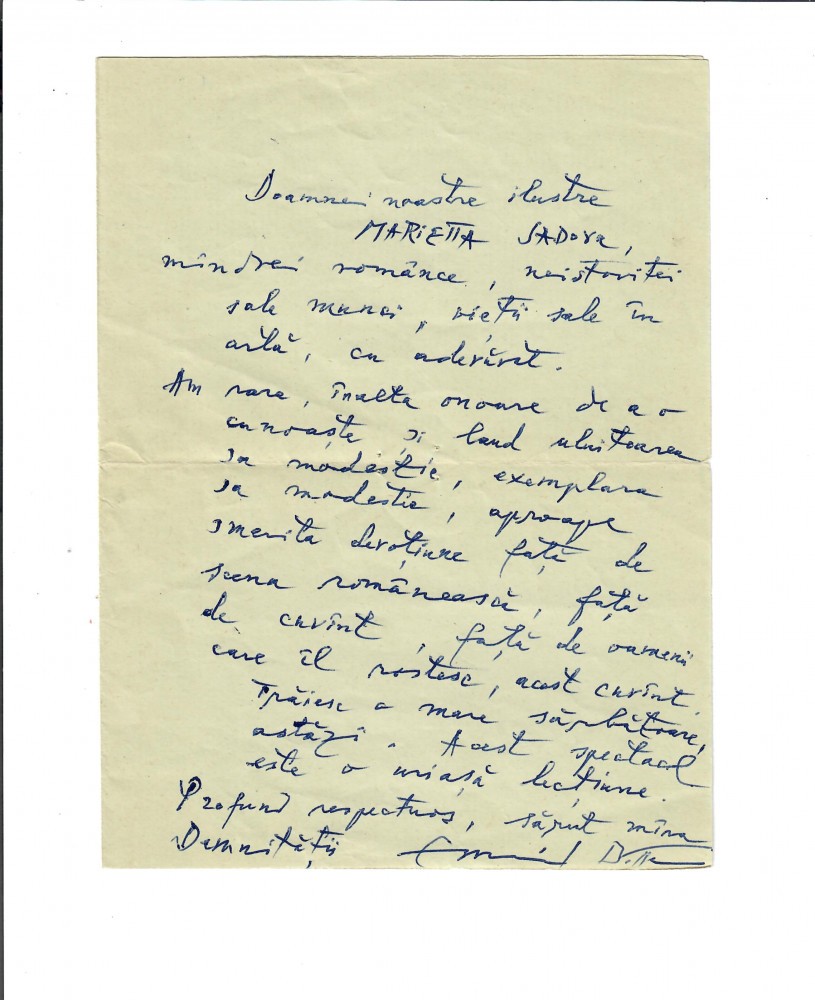 Doamnei noastre ilustre
MARIETTA SADOVA,
mîndrei românce, neistovitei
sale munci, vieții sale în
artă, cu adevărat.
Am rara, înalta onoare de a o
cunoaște și laud uluitoarea
sa modestie, exemplara
sa modestie, aproape
smerita devoțiune față de
scena românească, față
de cuvînt, față de oamenii
care îl rostesc, acest cuvînt.
Trăiesc o mare sărbătoare,
astăzi. Acest spectacol
este o uriașă lecțiune.
Profund respectuos, sărut mîna
Demnității Emil Botta